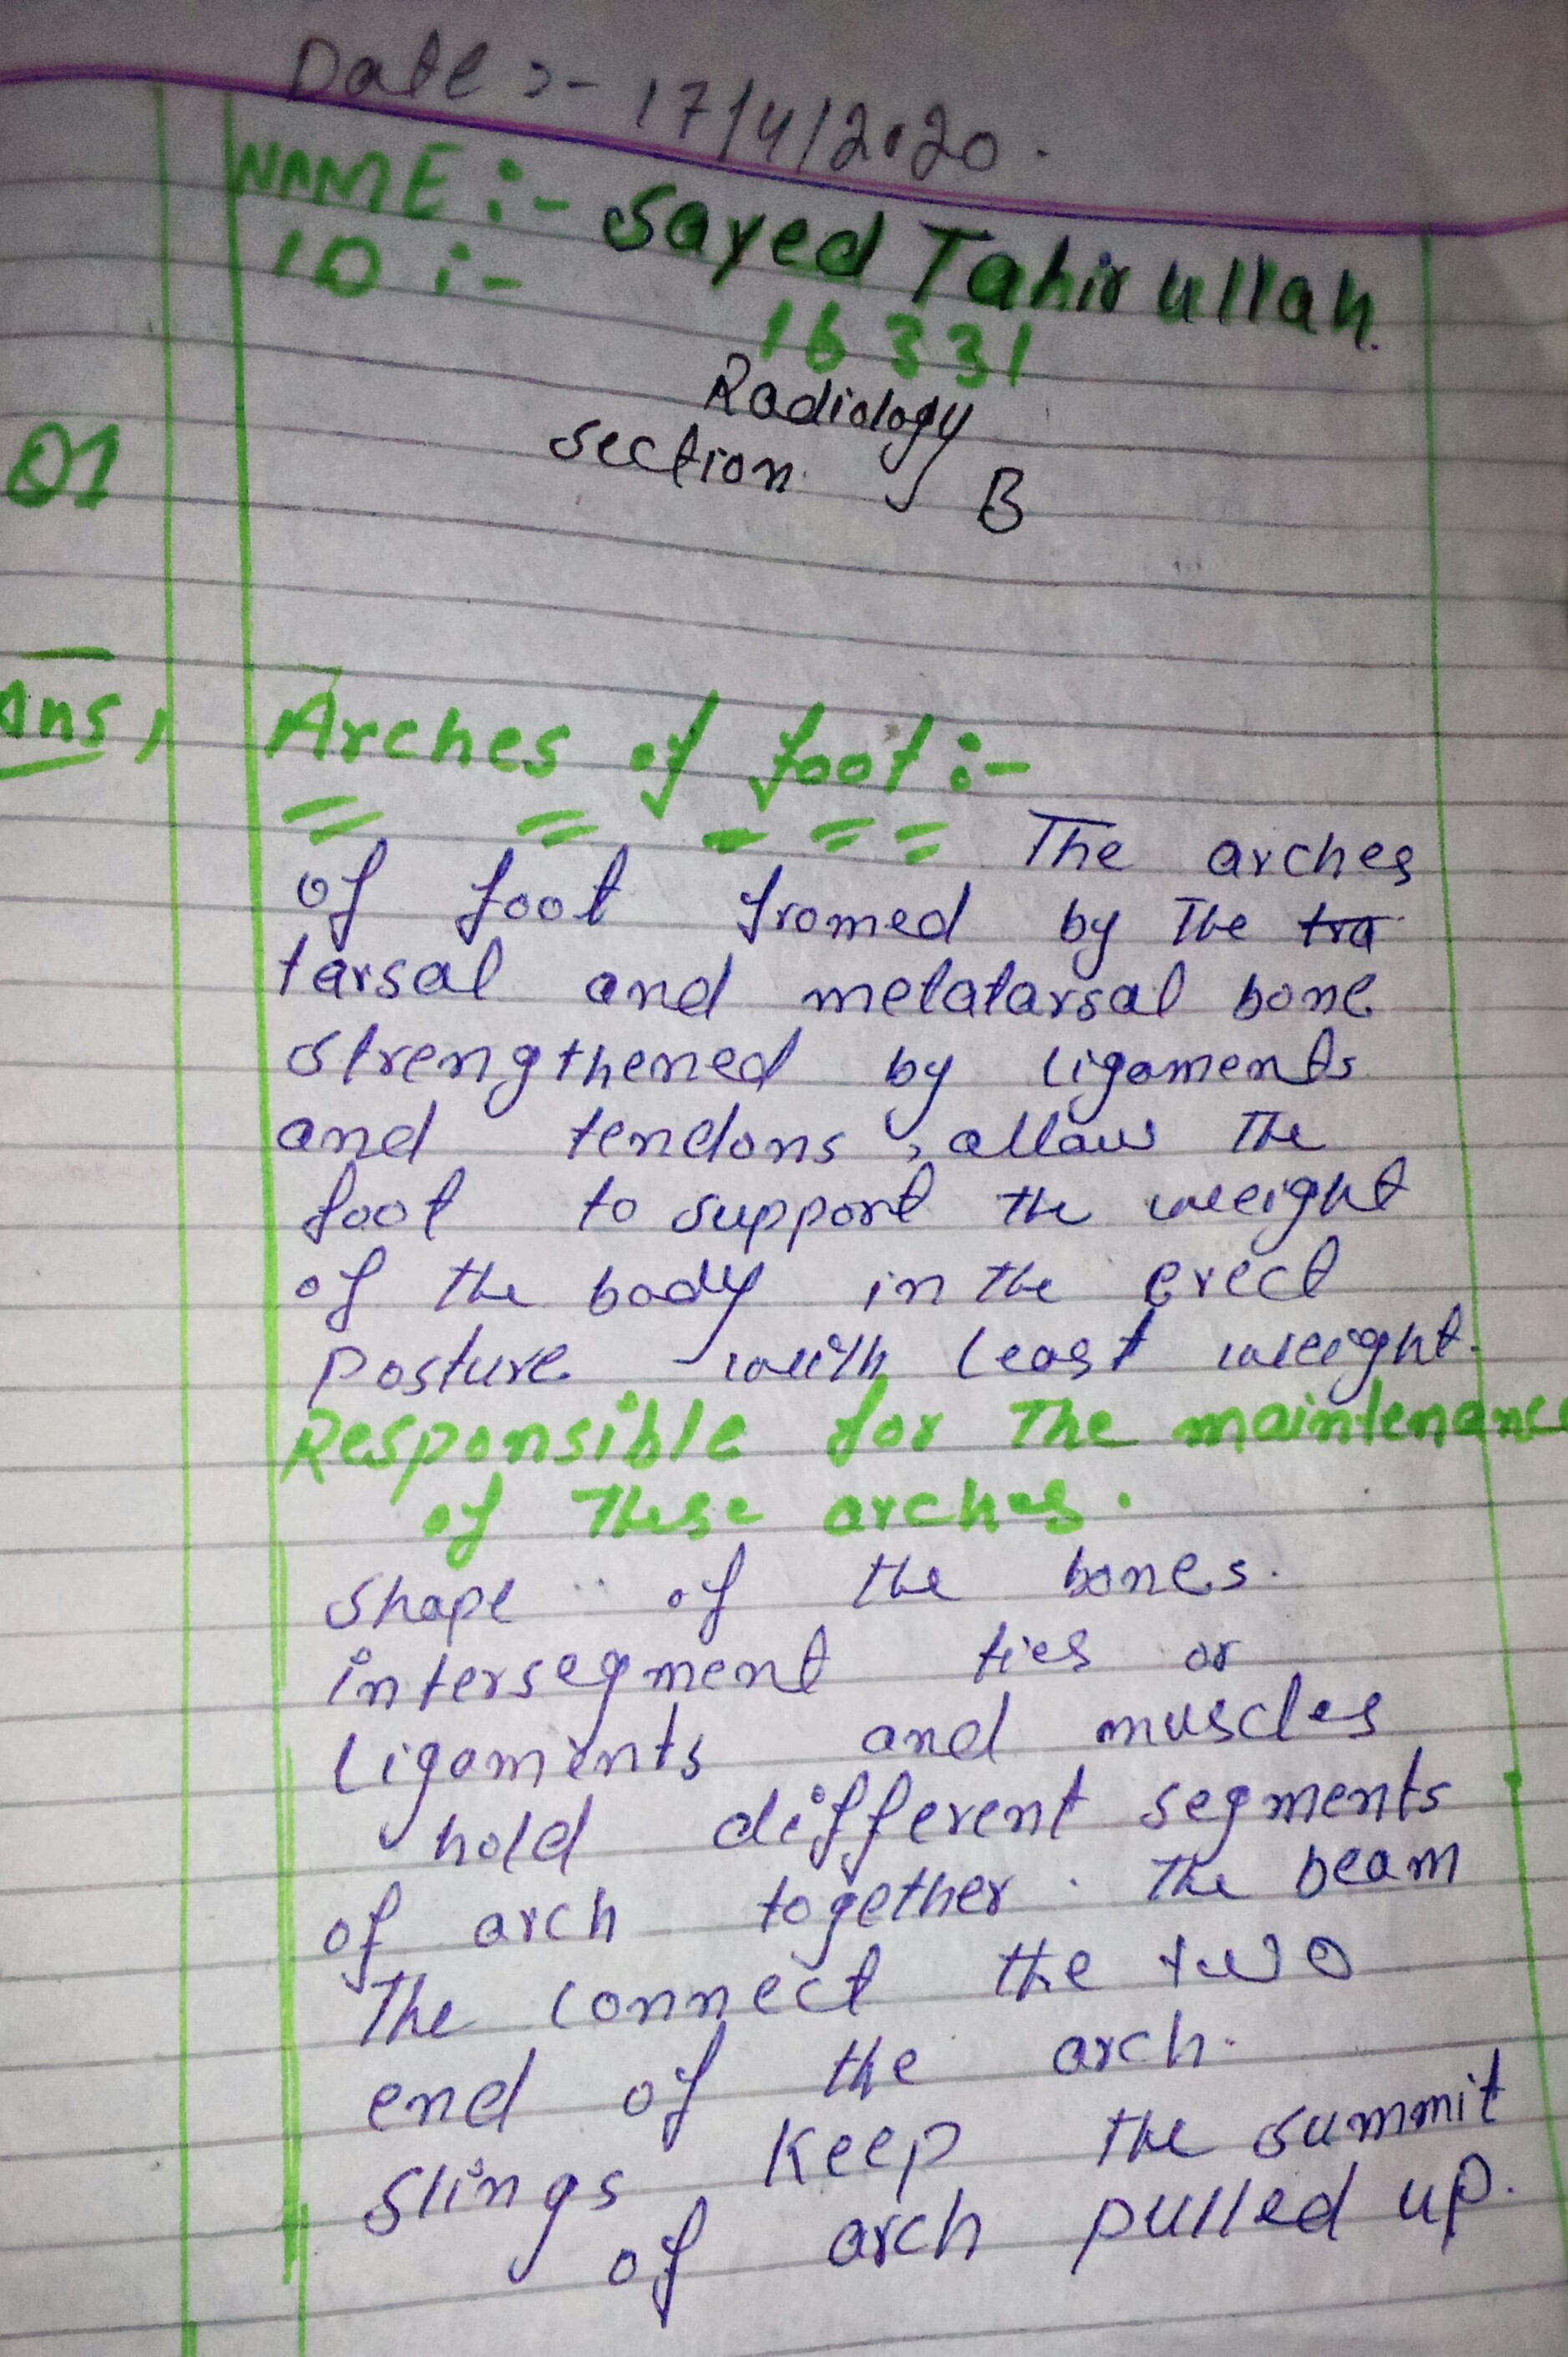 Date :- 17/4/2020.
NAME :- Sayed Tahir ullah.
ID :- 16331
Radiology
Section B
Q1
Ans, Arches of foot :-
The arches
of foot fromed by The tra
tarsal and metatarsal bone
strengthened by ligaments
and tendons, allow The
foot to support the weight
of the body in the erect
posture with least weight.
Responsible for The maintenance
of These arches.
Shape of the bones.
intersegment ties or
ligaments and muscles
hold different segments
of arch together. The beam
The connect the two
end of the arch.
Slings keep the summit
of arch pulled up.